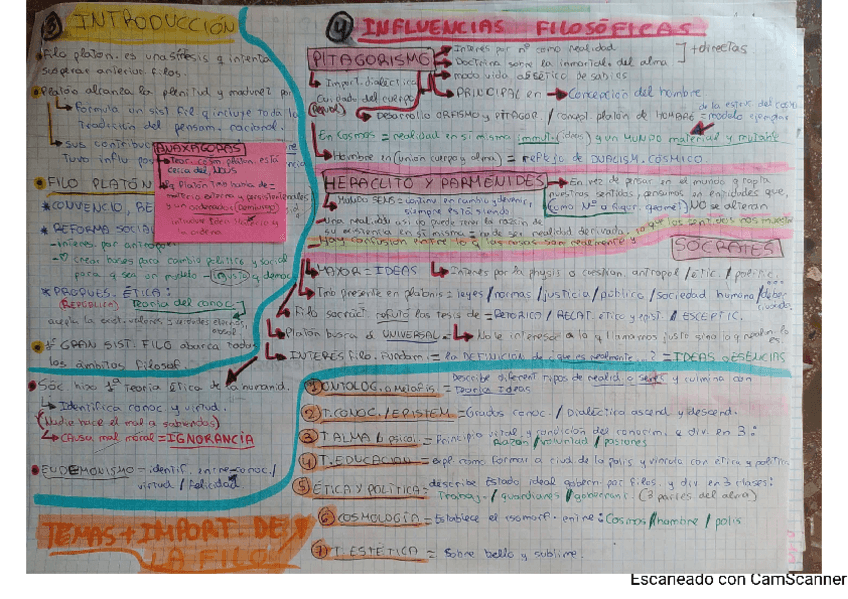 ③ INTRODUCCIÓN
Filo platón. es una síntesis q intenta
superar anterior filos.
Platón alcanza la plenitud y madurez por
Formula un sist fil q incluye toda la
tradición del pensam. racional.
sus contribuc
Tuvo influ pos
ANAXÁGORAS
Teor. cosm. platon. está
cerca del NOUS
FILO PLATÓN
* CONVENCIO, RE
* REFORMA SOCIAL
- interés por antropo
- Crear bases para cambio político y social
para q sea un modelo - justo y democ
* PROPUES. ÉTICA:
(REPÚBLICA) Teoría del conoc.
1º GRAN SIST. FILO abarca todos
los ámbitos filosof.
Sóc hizo 1ª Teoría ética de la humanid.
Identifica conoc. y virtud.
(Nadie hace el mal a sabiendas)
Causa mal moral = IGNORANCIA
EUDEMONISMO = identif. entre conoc./
virtud / felicidad
TEMAS + IMPORT. DE
LA FILO
④ INFLUENCIAS FILOSÓFICAS
PITAGORISMO
Interés por nº como realidad
Doctrina sobre la inmortal. del alma
modo vida ascético de sabios
] + directas
PRINCIPAL en → Concepción del hombre
Import. dialéctica
Cuidado del cuerpo
Desarrollo ORFISMO y PITÁGOR. / concep. platón de HOMBRE
En Cosmos = realidad en sí misma inmut. (ideas) y un MUNDO material y mutable
Hombre en (unión cuerpo y alma) = reflejo de DUALISM. CÓSMICO
HERÁCLITO Y PARMÉNIDES
En vez de pensar en el mundo q capta
nuestros sentidos, pensamos en entidades que,
(como Nº o figur. geomet) NO se alteran
Mundo SENS = continuo en cambio y devenir,
siempre está siendo
Una realidad así no puede tener la razón de
su existencia en sí misma = ha de ser realidad derivada.
Hay confusión entre lo q las cosas son realmente y lo que los sentidos nos muestran
SÓCRATES
MAYOR = IDEAS
Interés por la physis o cuestion. antropol / étic. / polític. ...
Tmb presente en platonis = leyes / normas / justicia / público / sociedad humana / deber
Filo socrát. refutó las tesis de = RETÓRICO / RELAT. ético y epist. / ESCÉPTIC.
Platón busca el UNIVERSAL = No le interesa a lo q llamamos justo sino lo q realm. lo es
INTERÉS filo. Fundam. = la DEFINICIÓN de ¿qué es realmente...? = IDEAS o ESENCIAS
① ONTOLOG. o METAFÍS. = Describe diferent tipos de realid. o seres y culmina con
Teoría Ideas
② T. CONOC. / EPISTEM = Grados conoc. / Dialéctica ascend y descend.
③ T ALMA (psico) = Principio vital y condición del conocim. q div. en 3:
Razón / voluntad / pasiones
④ T. EDUCACIÓN = expl como formar a ciud. de la polis y vincula con ética y política
⑤ ÉTICA Y POLÍTICA = describe Estado ideal gobern por filos. y div en 3 clases:
Trabaj. / guardianes / gobernant. (3 partes del alma)
⑥ COSMOLOGÍA = Establece el isomorf. entre: Cosmos / hombre / polis
⑦ T. ESTÉTICA = Sobre bello y sublime.
Escaneado con CamScanner